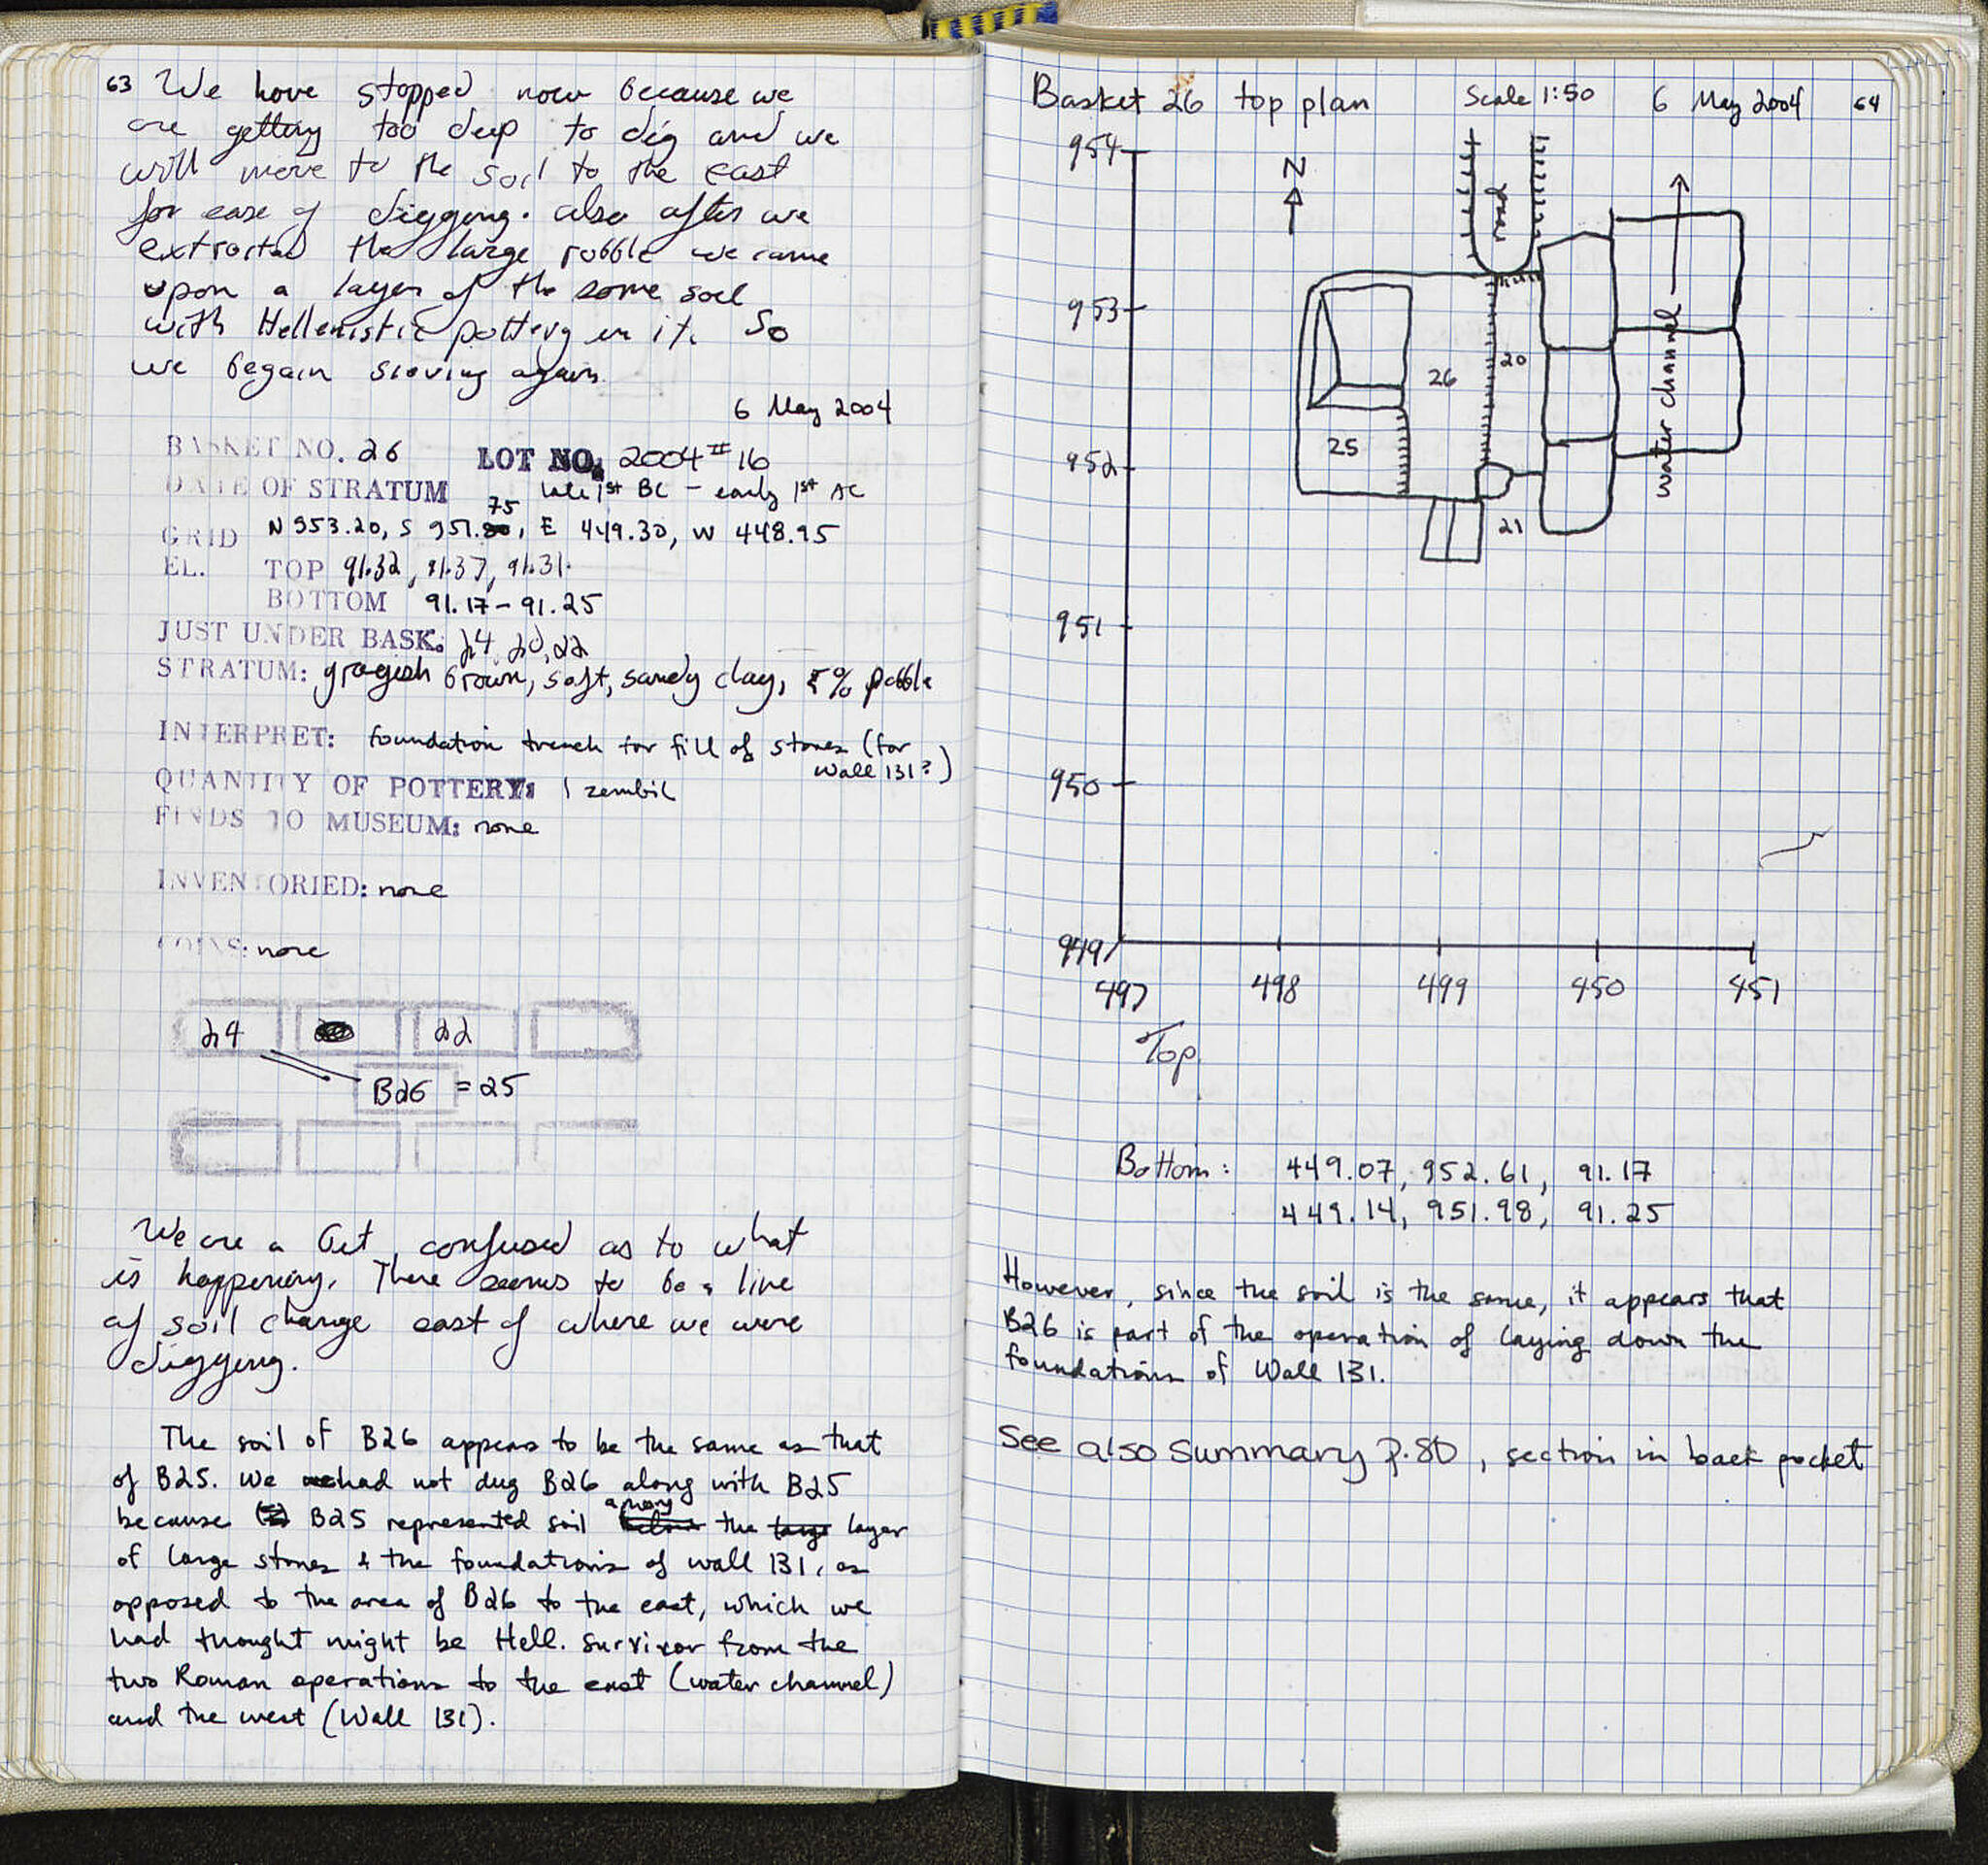 63 We have stopped now because we
are getting too deep to dig and we
will move to the soil to the east
for ease of digging. also after we
extracted the large rubble we came
upon a layer of the same soil
with Hellenistic pottery in it. So
we begain sieving again.
6 May 2004
BASKET NO. 26 LOT NO. 2004 # 16
DATE OF STRATUM late 1st BC - early 1st AC
75
GRID N 953.20, S 951.80, E 449.30, W 448.95
EL. TOP 91.32, 91.37, 91.31.
BOTTOM 91.17 - 91.25
JUST UNDER BASK: 24, 20, 22
STRATUM: grayish brown, soft, sandy clay, 5% pebble
INTERPRET: foundation trench for fill of stones (for
Wall 131?)
QUANTITY OF POTTERY: 1 zembil
FINDS TO MUSEUM: none
INVENTORIED: none
COINS: none
24 22
B26 = 25
We are a bit confused as to what
is happening. There seems to be a line
of soil change east of where we were
digging.
The soil of B26 appears to be the same as that
of B25. We had not dug B26 along with B25
because B25 represented soil among the layer
of large stones & the foundations of wall 131, as
opposed to the area of B26 to the east, which we
had thought might be Hell. survivor from the
two Roman operations to the east (water channel)
and the west (Wall 131).
Basket 26 top plan Scale 1:50 6 May 2004 64
954
N
grave
953
water channel
20
26
25
952
21
951
950
949
497 498 499 450 451
Top
Bottom: 449.07, 952.61, 91.17
449.14, 951.98, 91.25
However, since the soil is the same, it appears that
B26 is part of the operation of laying down the
foundations of Wall 131.
See also Summary p. 80, section in back pocket